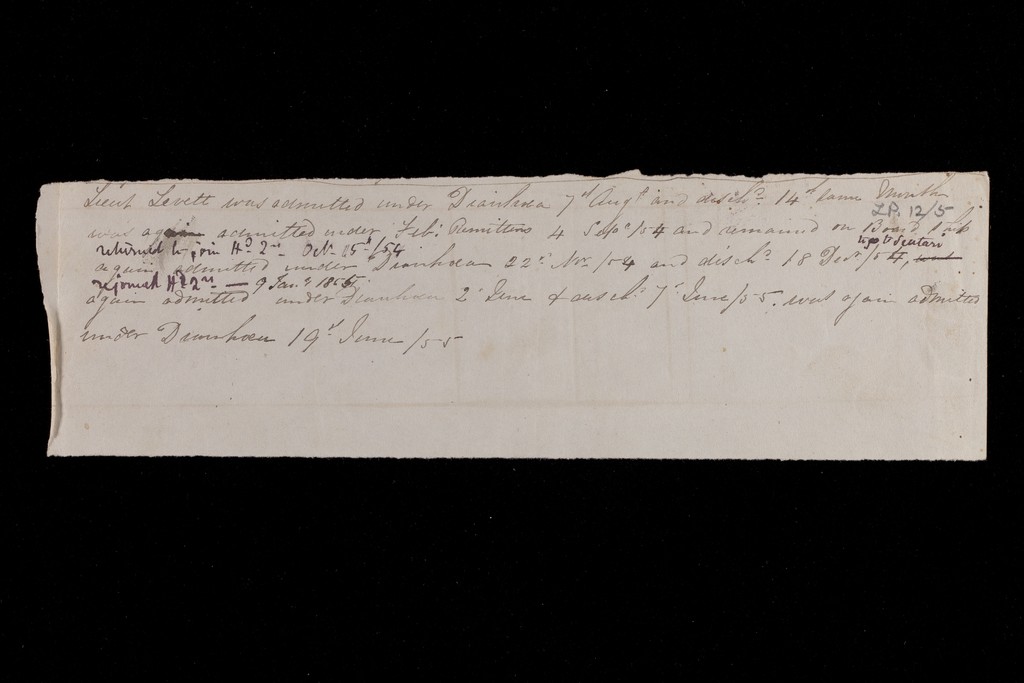 Lieut Levett was admitted under Diarrhœa 7th Augt and dischd. 14th same Month
LP. 12/5
was again admitted under Feb: Remittens 4 Sepr/54 and remained on Board Ship
returned to join Hd. Qrs. Octr. 15th/54
to go to Scutari
again admitted under Diarrhœa 22d Nov/54 and dischd. 18 Decr/54,
rejoined Hd Qrs — 9 Jany. 1855
again admitted under Diarrhœa 2d June & dischd. 7th June/55. was again admitted
under Diarrhœa 19th June/55